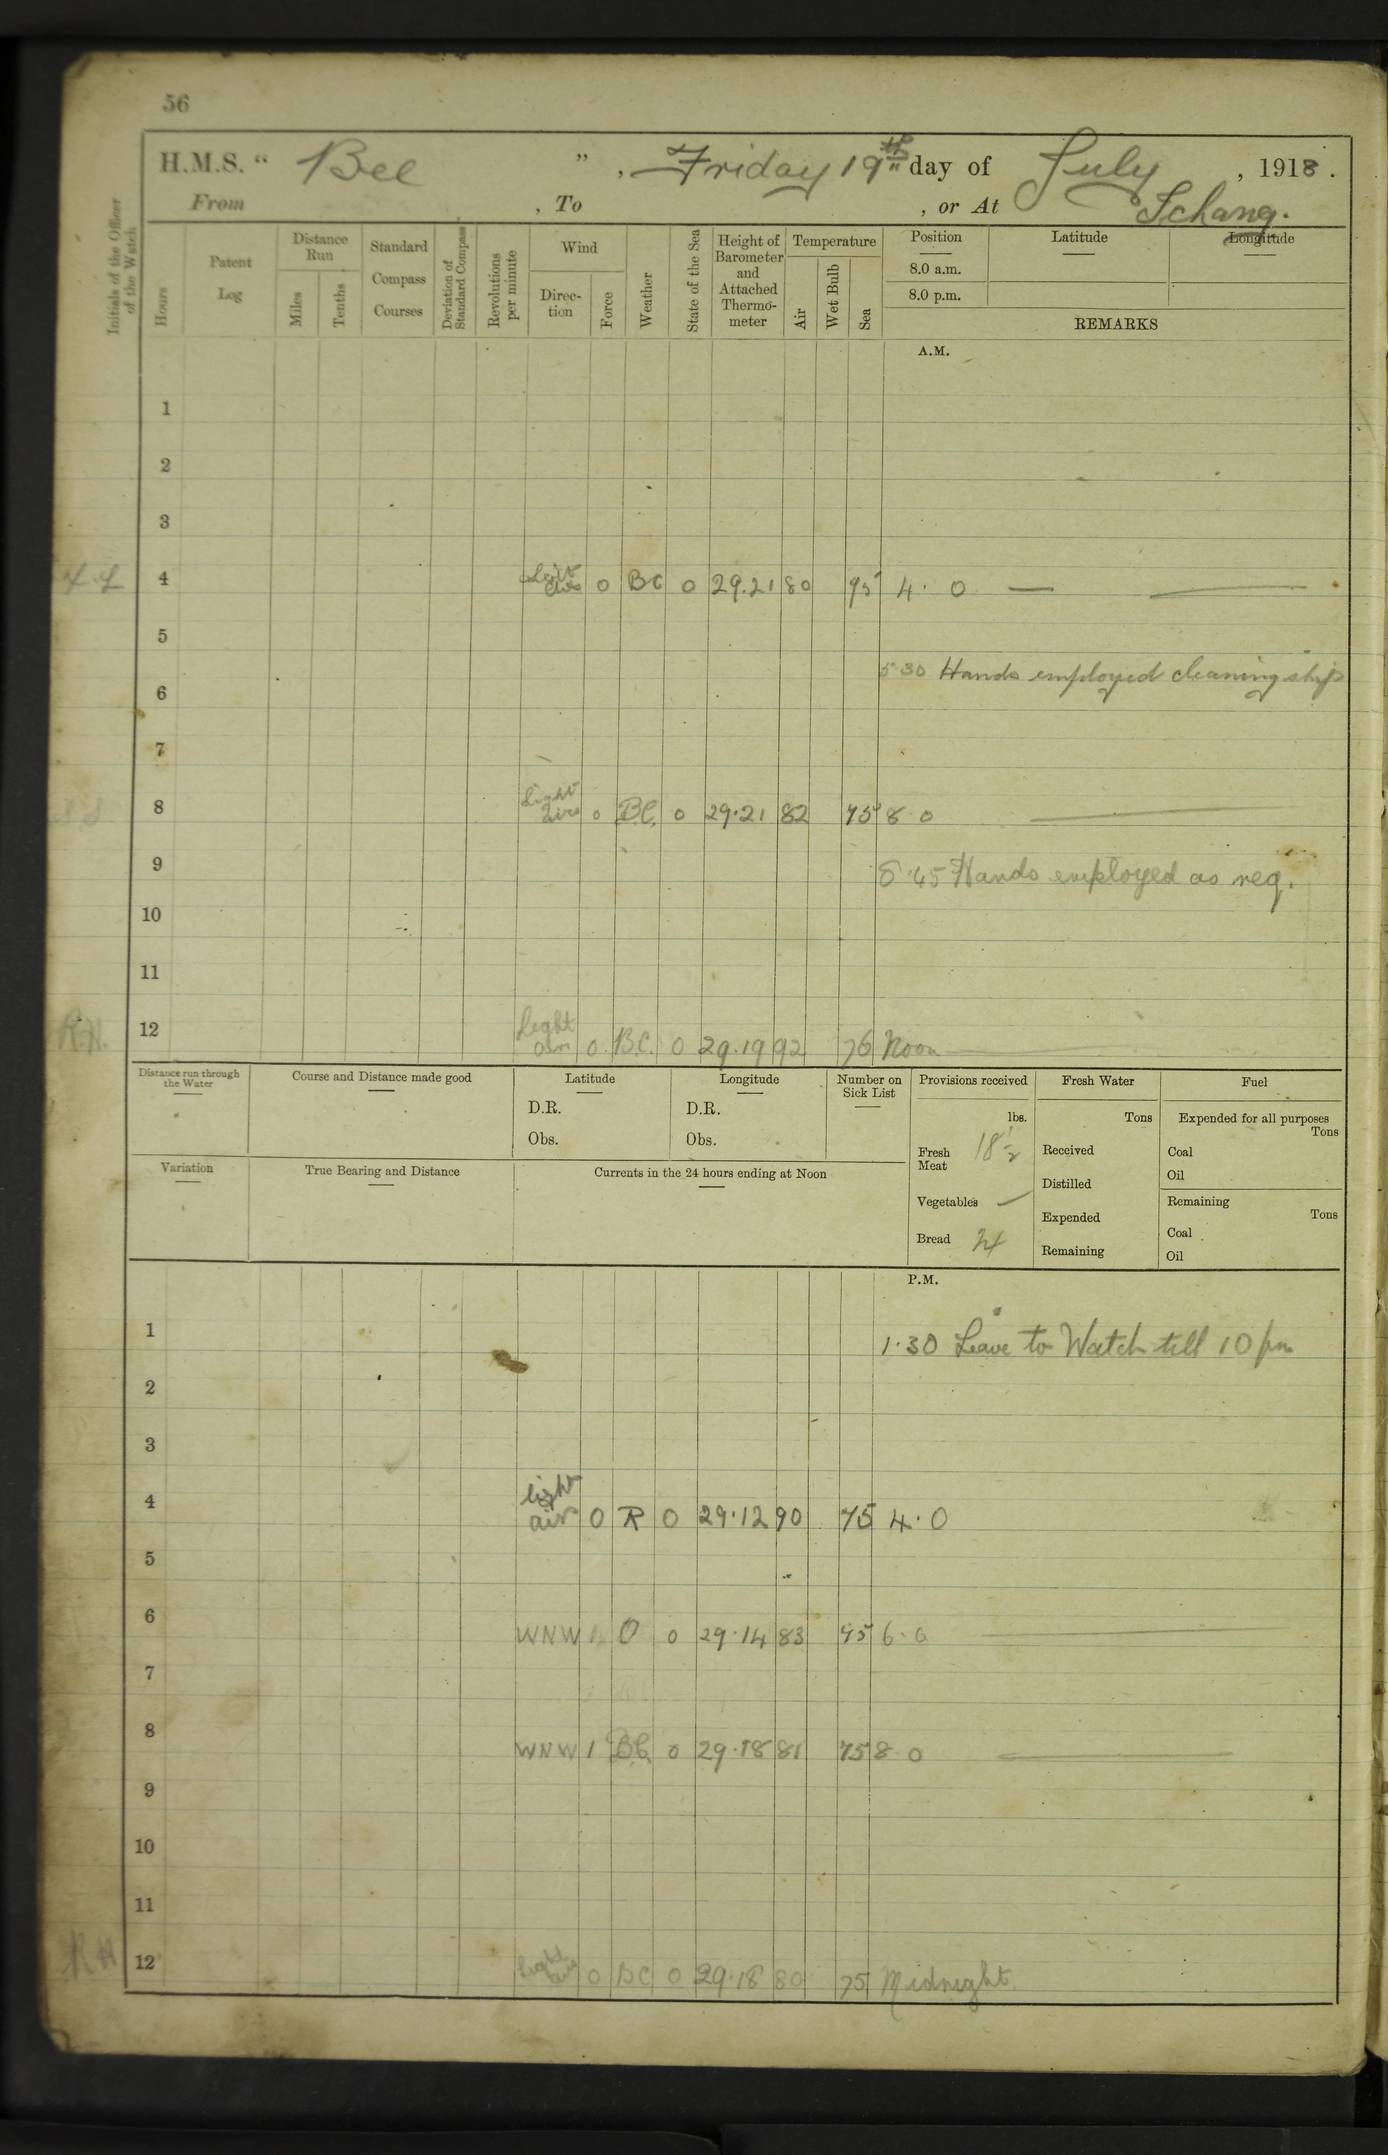 56
H.M.S. " Bee ", Friday 19th day of July, 1918.
From , To , or At Ichang.
Initials of the Officer of the Watch
Hours
Patent Log
Distance Run
Miles
Tenths
Standard Compass Courses
Deviation of Standard Compass
Revolutions per minute
Wind
Direction
Force
Weather
State of the Sea
Height of Barometer and Attached Thermometer
Temperature
Air
Wet Bulb
Sea
Position Latitude Longitude
8.0 a.m.
8.0 p.m.
REMARKS
A.M.
1
2
3
4 Light airs 0 BC 0 29.21 80 75 4.0 —
5
5.30 Hands employed cleaning ship
6
7
8 Light airs 0 B.C. 0 29.21 82 75 8.0
9 8.45 Hands employed as req.
10
11
R.H. 12 Light air 0 B.C. 0 29.19 92 76 Noon
Distance run through the Water
Course and Distance made good
Latitude
D.R.
Obs.
Longitude
D.R.
Obs.
Number on Sick List
Variation
True Bearing and Distance
Currents in the 24 hours ending at Noon
Provisions received
lbs.
Fresh Meat 18½
Vegetables —
Bread 24
Fresh Water
Tons
Received
Distilled
Expended
Remaining
Fuel
Expended for all purposes
Tons
Coal
Oil
Remaining
Tons
Coal
Oil
P.M.
1 1.30 Leave to Watch till 10 pm
2
3
4 light air 0 R 0 29.12 90 75 4.0
5
6 WNW 1 O 0 29.14 83 75 6.0
7
8 WNW 1 BC 0 29.18 81 75 8 0
9
10
11
RH 12 Light airs 0 BC 0 29.18 80 75 Midnight.